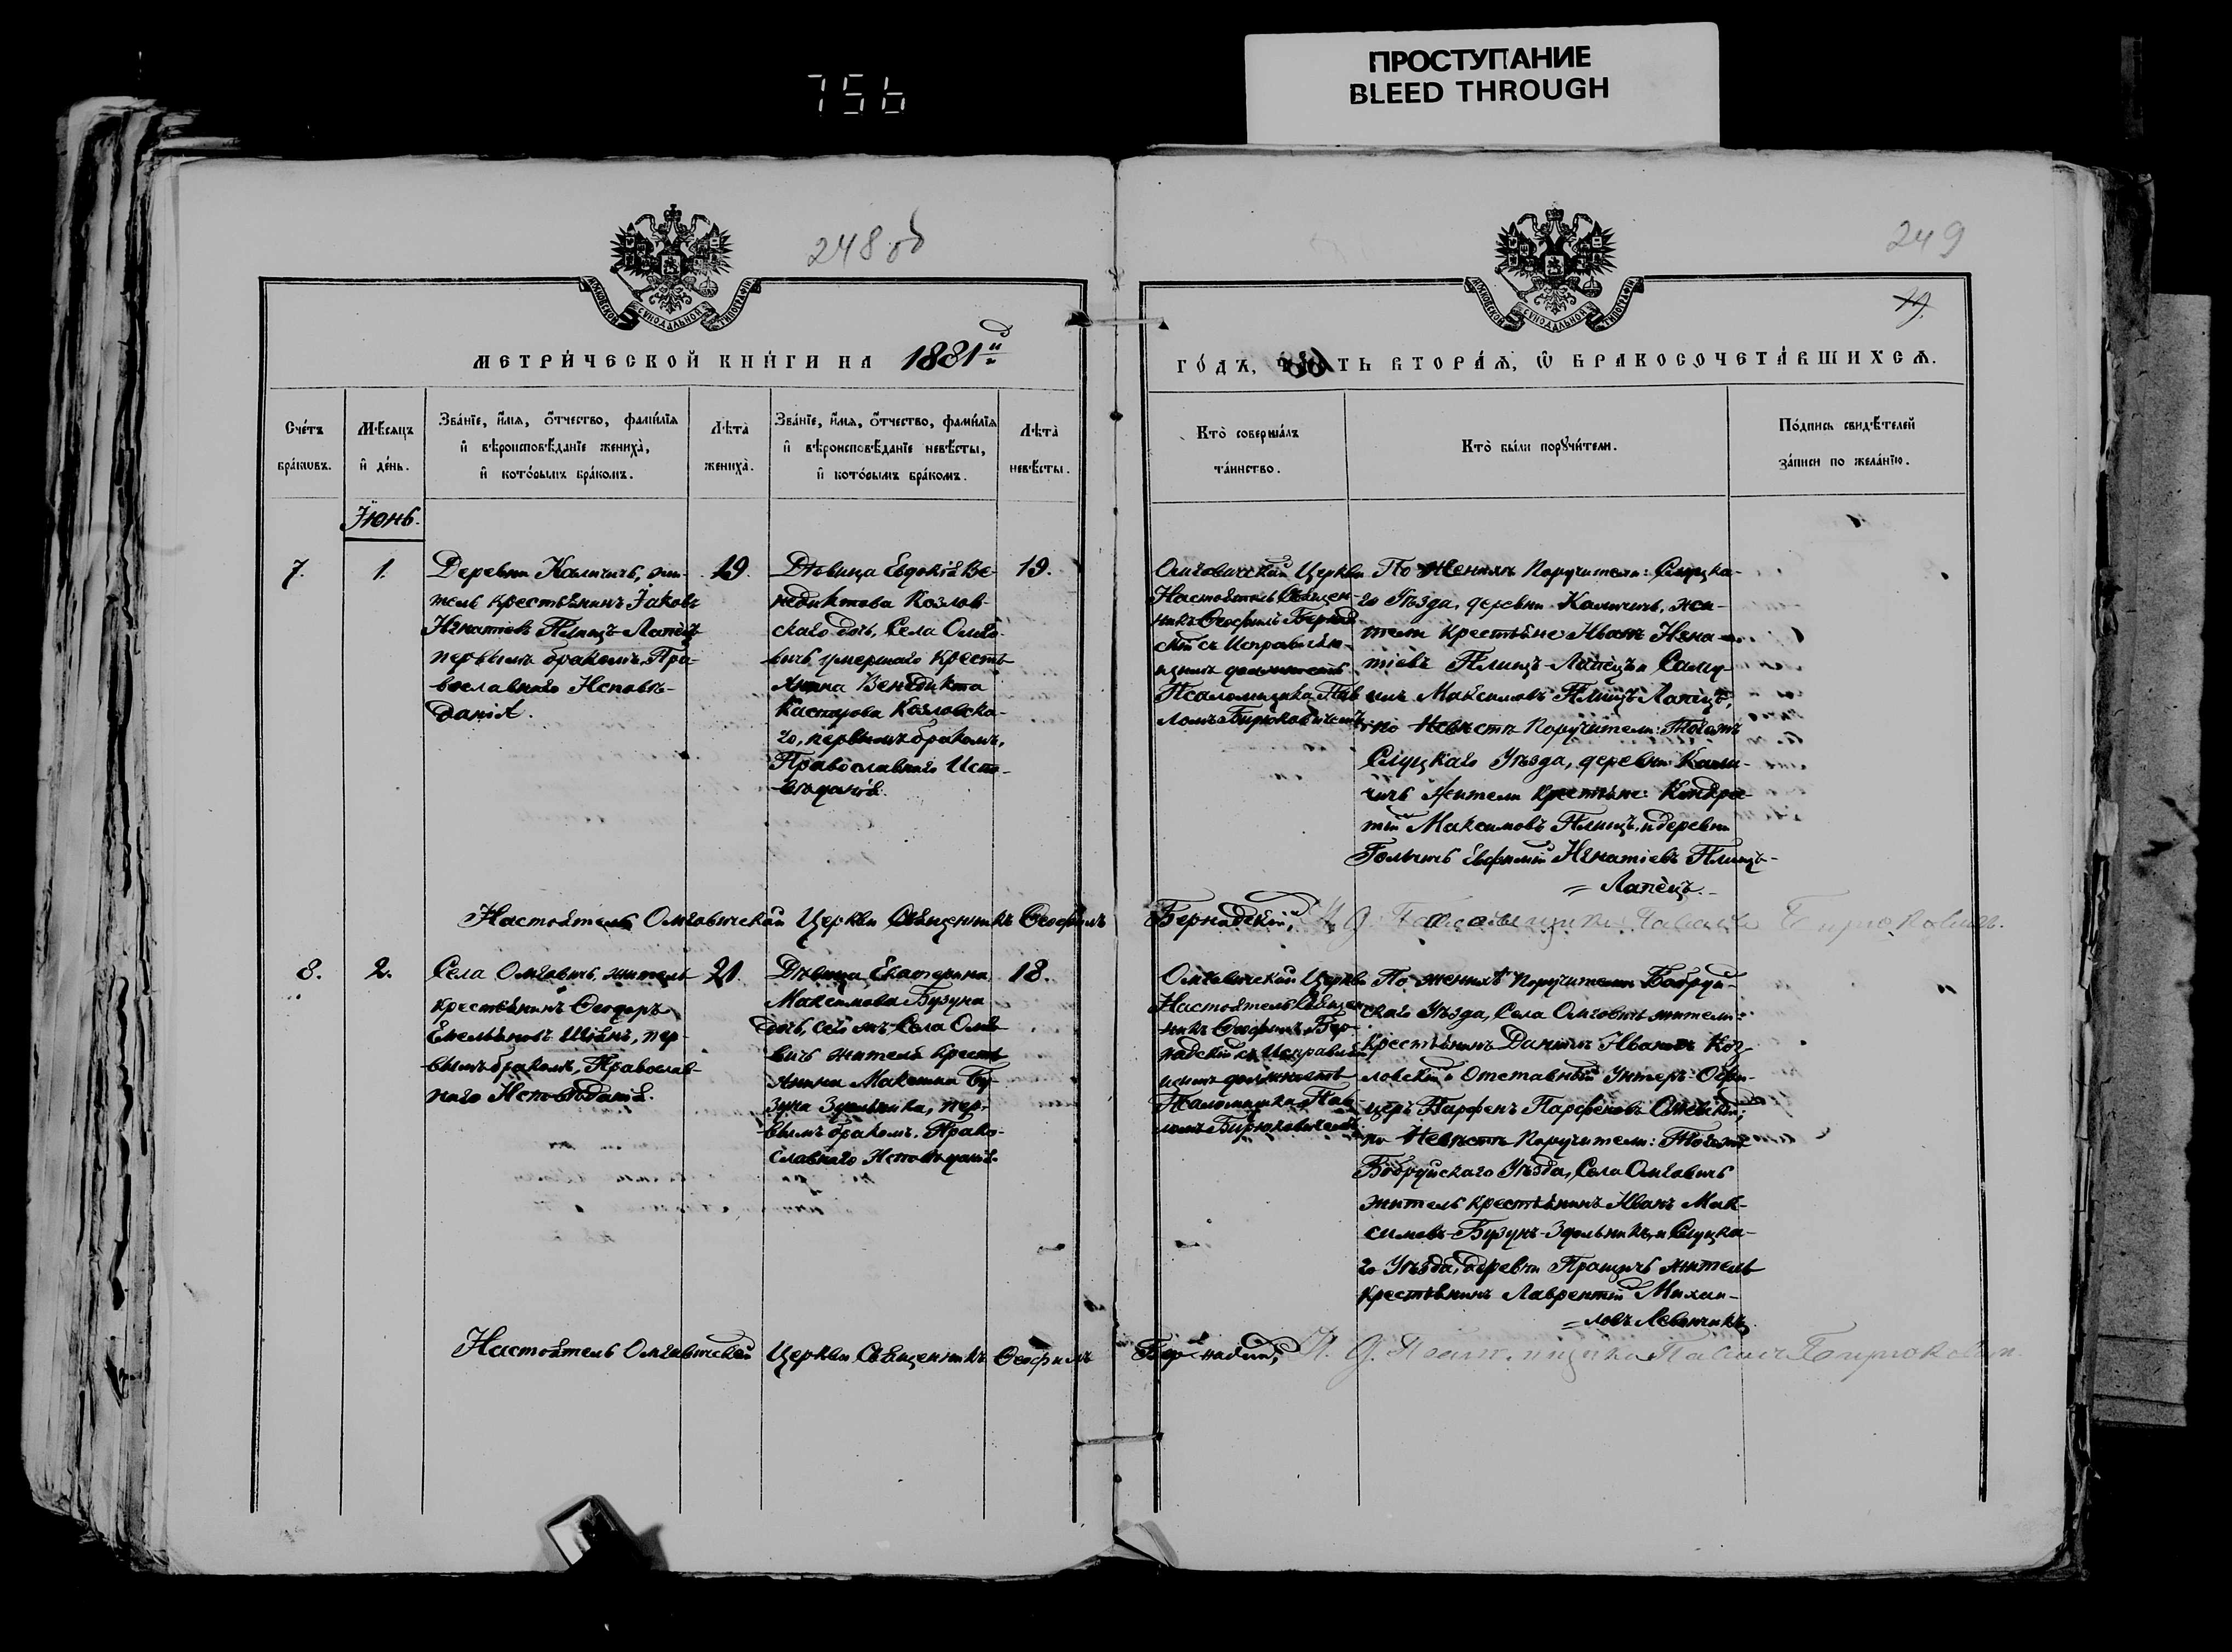 ПРОСТУПАНИЕ
BLEED THROUGH
756
248 об
249
МЕТРИ́ЧЕСКОЙ КНИ́ГИ НА 1881й
ГО́ДЪ, ЧА́СТЬ ВТОРА́Ѧ, Ѡ БРАКОСОЧЕТА́ВШИХСѦ.
Сче́тъ бра́кѡвъ.
Мѣ́сяцъ и҆ де́нь.
Зва́нїе, и҆́мя, о҆́тчество, фами́лїя
и҆ вѣроисповѣ́данїе жениха̀,
и҆ кото́рымъ бра́комъ.
Лѣта̀ жениха̀.
Зва́нїе, и҆́мя, о҆́тчество, фами́лїя
и҆ вѣроисповѣ́данїе невѣ́сты,
и҆ кото́рымъ бра́комъ.
Лѣта̀ невѣ́сты.
Кто̀ соверша́лъ
та́инство.
Кто̀ бы́ли порꙋчи́тели.
По́дпись свидѣ́телей
за́писи по жела́нїю.
Іюнь.
7.
1.
Деревни Каличичь, жи-
тель крестьянинъ Іаковъ
Игнатіевъ Плищъ-Лапецъ
первымъ бракомъ, Пра-
вославнаго Исповѣ-
данія.
19.
Дѣвица Евдокія Ве-
недиктова Козлов-
скаго дочь, Села Омго-
вичь, умершаго кресть-
янина Венедикта
Касторова Козловска-
го, первымъ бракомъ,
Православнаго Испо-
вѣданія.
19.
Омговичской Церкви
Настоятель Священ-
никъ Ѳеофилъ Бернад-
скій съ Исправляю-
щимъ должность
Псаломщика Пав-
ломъ Бирюковичемъ
По Женихѣ Поручители: Слуцка-
го Уѣзда, деревни Каличичь, жи-
тели крестьяне Иванъ Игна-
тіевъ Плищъ-Лапецъ и Саму-
илъ Максимовъ Плищъ Лапецъ;
по Невѣстѣ Поручители: Тогожъ
Слуцкаго Уѣзда, деревни Кали-
чичь Жители Крестьяне: Кондра-
тій Максимовъ Плищъ, и деревни
Голычь Евфимій Игнатіевъ Плищъ-
= Лапецъ.
Настоятель Омговичской Церкви Священникъ Ѳеофилъ Бернадскій, И. д. Псаломщика Павелъ Бирюковичъ.
8.
2.
Села Омговичь, житель
крестьянинъ Ѳеодоръ
Емельяновъ Шіянъ, пер-
вымъ бракомъ, Православ-
наго Исповѣданія.
21.
Дѣвица Екатерина
Максимова Бузуна
дочь, сего жъ Села Омго-
вичь жителя кресть-
янина Максима Бу-
зуна Здольника, пер-
вымъ бракомъ, Право-
славнаго Исповѣданія.
18.
Омговичской Церкви
Настоятель Священ-
никъ Ѳеофилъ Бер-
надскій съ Исправляю-
щимъ должность
Псаломщика Пав-
ломъ Бирюковичемъ
По женихѣ Поручители Бобруй-
скаго Уѣзда, Села Омговичь жители:
крестьянинъ Даніилъ Ивановъ Коз-
ловскій и Отставный Унтеръ-Офи-
церъ Парфенъ Парфеновъ
по Невѣстѣ Поручители: Тогожъ
Бобруйскаго Уѣзда, Села Омговичь
житель крестьянинъ Иванъ Мак-
симовъ-Бузунъ-Здольникъ, и Слуцка-
го Уѣзда, деревни Пращичь житель
крестьянинъ Лаврентій Михаи-
= ловъ Левончикъ
Настоятель Омговичской Церкви Священникъ Ѳеофилъ Бернадскій, И. д. Псаломщика Павелъ Бирюковичъ.